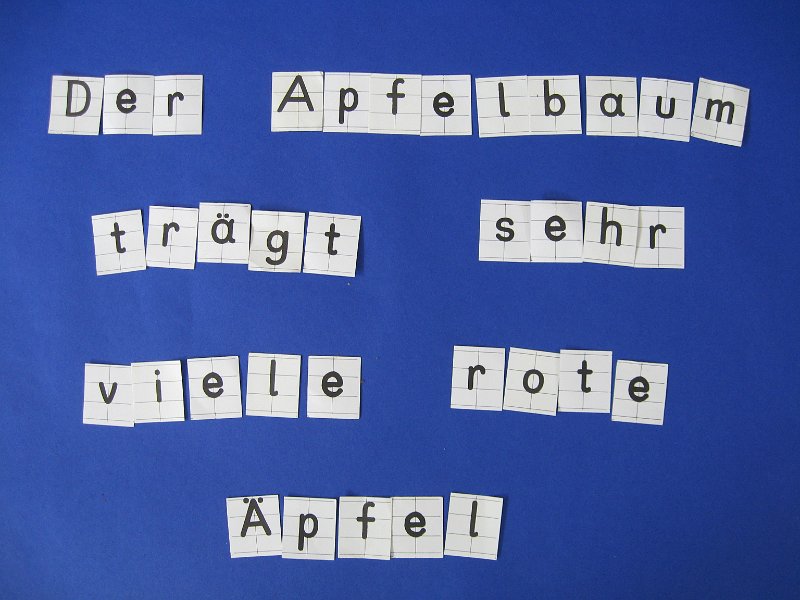 Der Apfelbaum
trägt sehr
viele rote
Äpfel